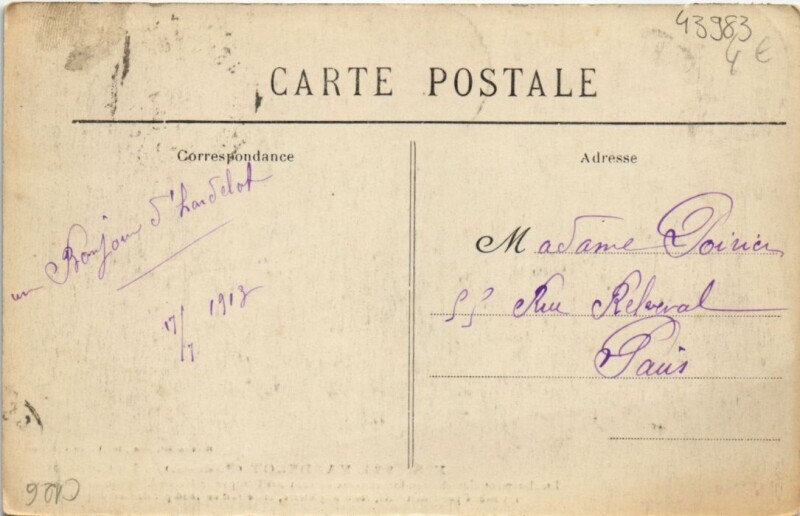 43983
4 €
CARTE POSTALE
Correspondance
Adresse
un Bonjour d'hardelot
17/7 1913
Madame Poirier
55 Rue Rebeval
Paris